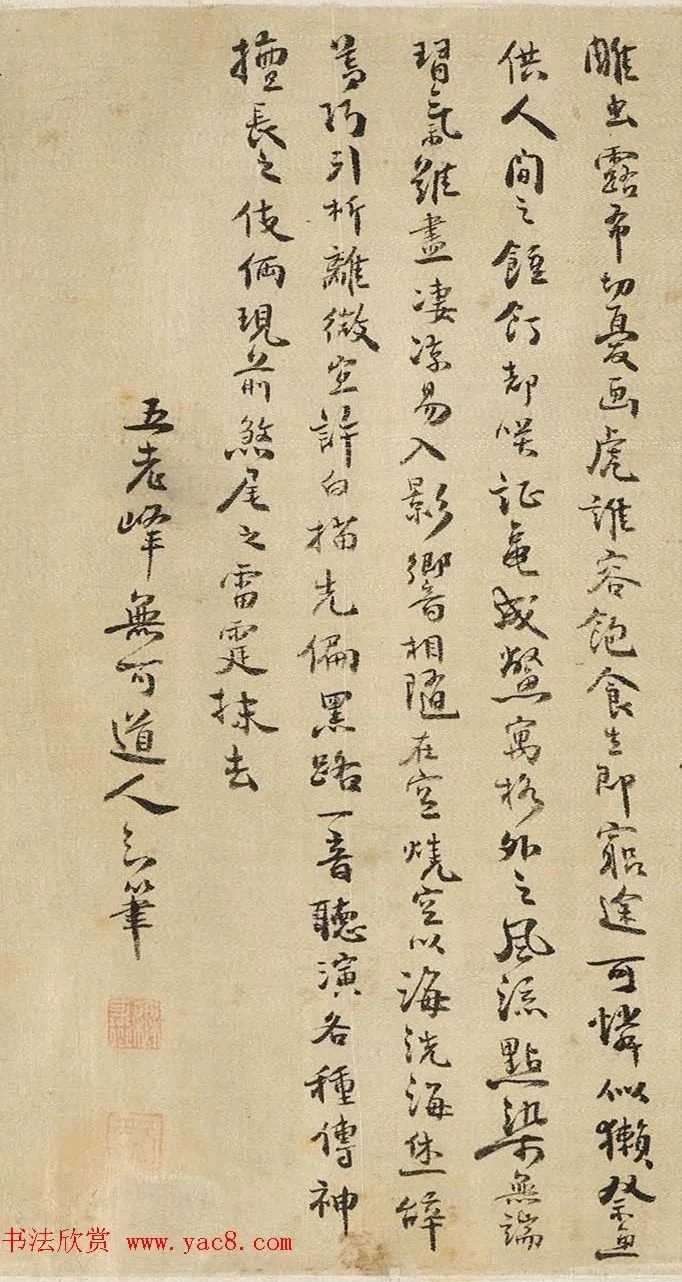 雕虫露布切憂画虎誰容飽食生即窮途可憐似獺祭盡
供人間之飣都咲証龜成鱉寓格外之風流點染無端
習氣難盡凄涼易入影響相隨在空燒空以海洗海
巧引析離微定許白描先偏黑路一音聽演各種傳神
擅長之伎倆現前煞尾之雷霆抹去
五老峰無可道人筆
书法欣赏 www.yac8.com